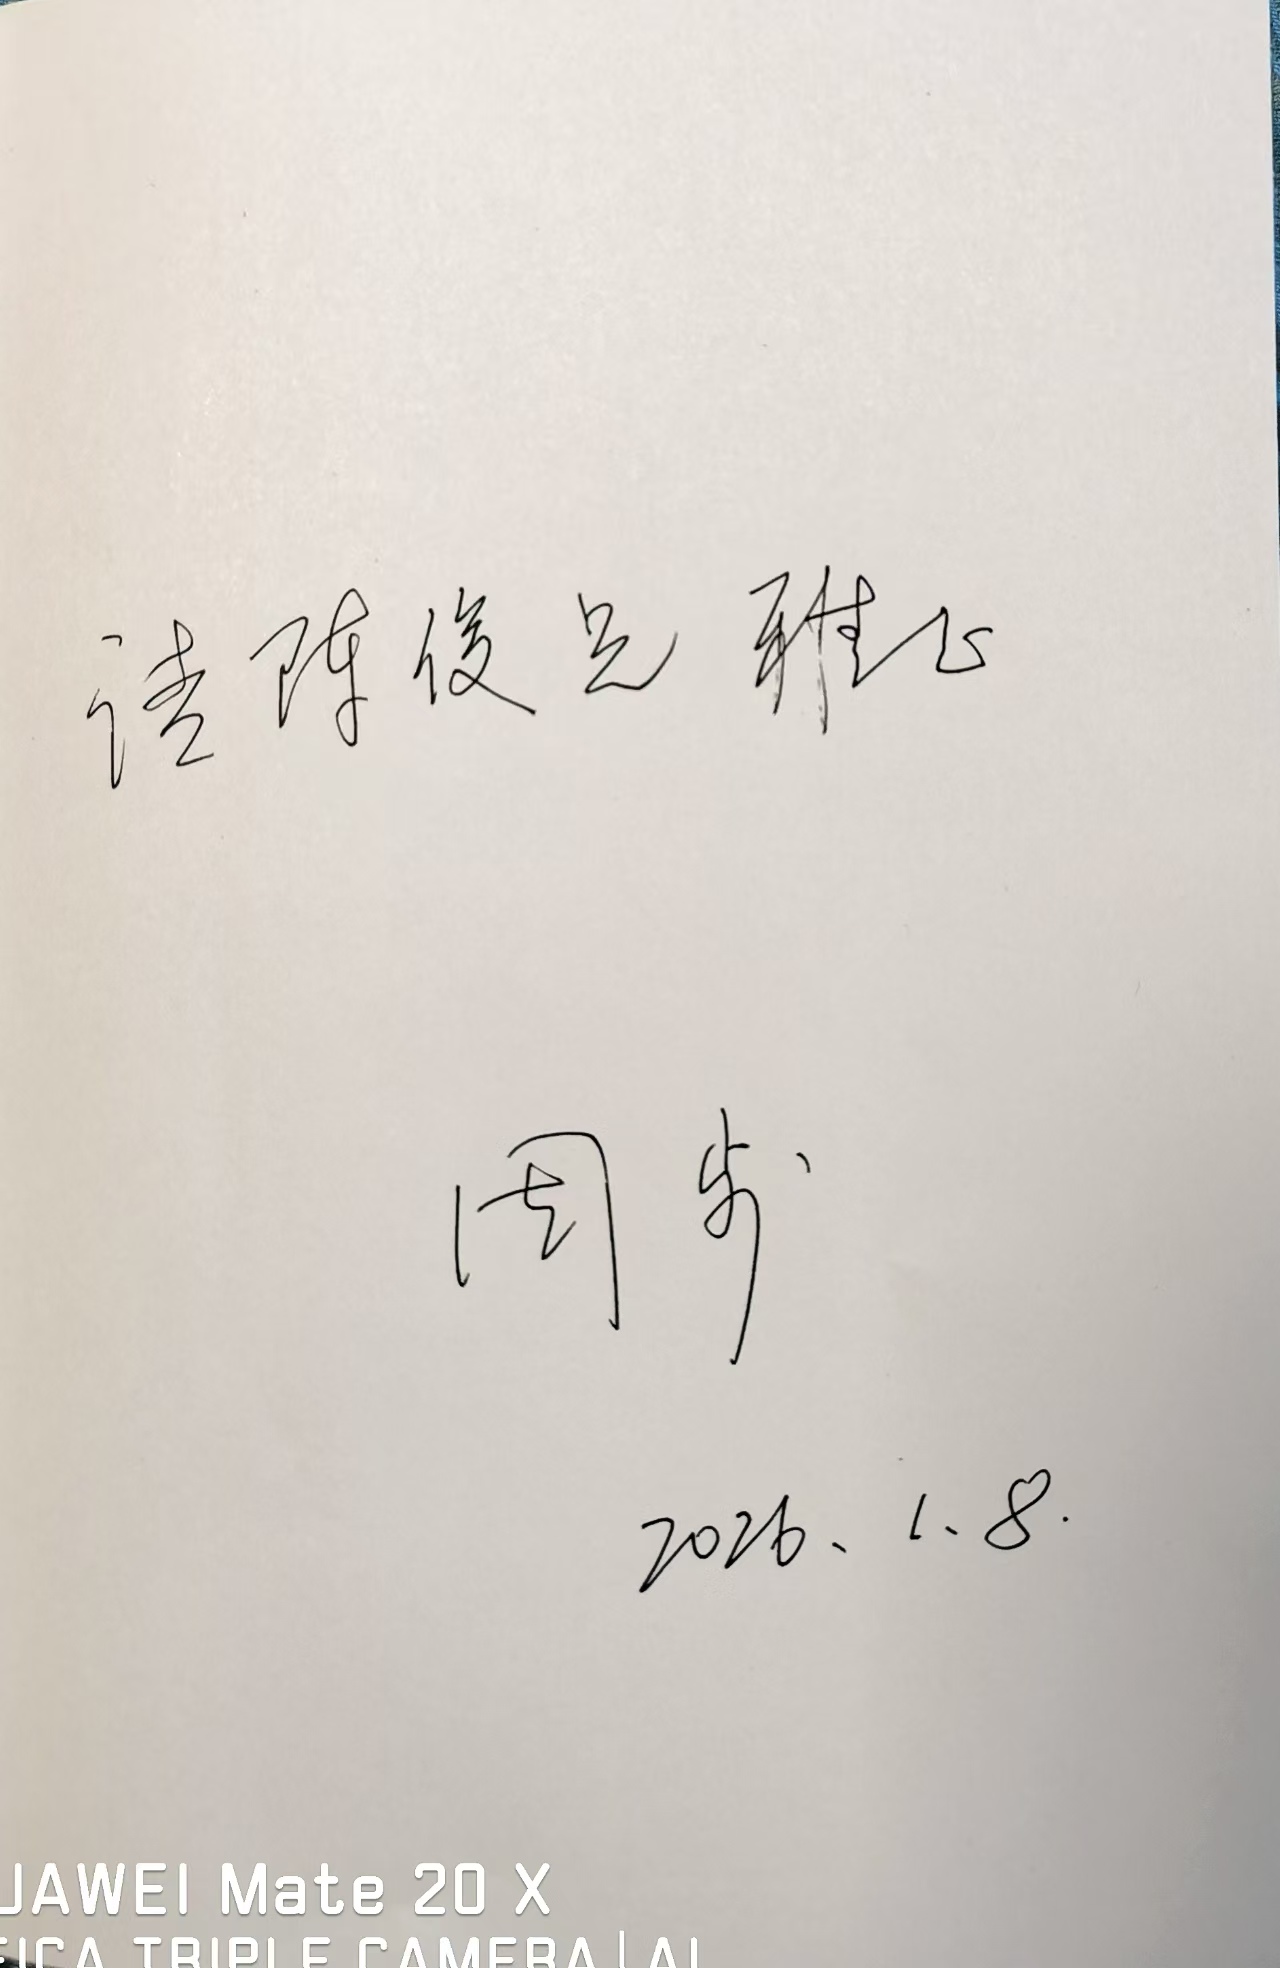 请陈俊兄 雅正
周步
2026.1.8.
UAWEI Mate 20 X
EICA TRIPLE CAMERA | AI